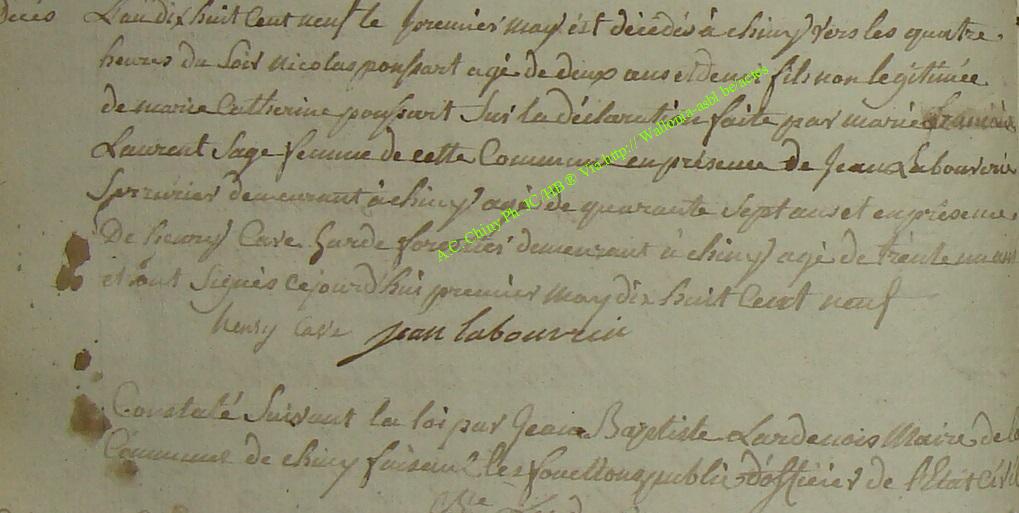 Décès L'an dix huit Cent neuf le premier may est décédé à chiny vers les quatre
heures du Soir nicolas poussart agé de deux ans et demi fils non legitimée
de marie Catherine poussart Sur la déclaration faite par marie
Laurent Sage femme de cette Commune en présence de Jean Labouverie
demeurant à chiny agé de quarante Sept ans et en présence
De henry Cave Garde forestier demeurant à chiny agé de trente
et ont Signés cejourd'hui premier may dix huit Cent neuf
henry Cave jean labouverie
Constaté Suivant la loi par Jean Baptiste Lardenois Maire de la
Commune de chiny faisant les fonctions public d'officier de l'Etat Civil
A.C. Chiny Ph. JC /HB ® Via http:// Wallonia-asbl.be/actes